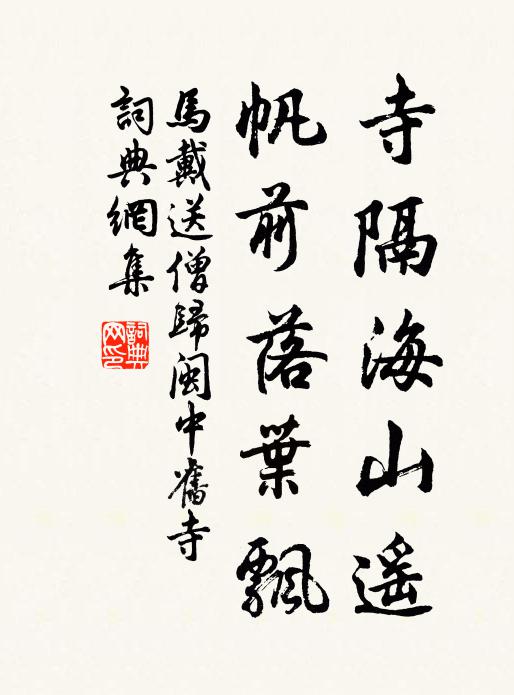 寺隔海山遥
帆前落葉飄
馬戴送僧歸閩中舊寺
詞典網集
詞典网印